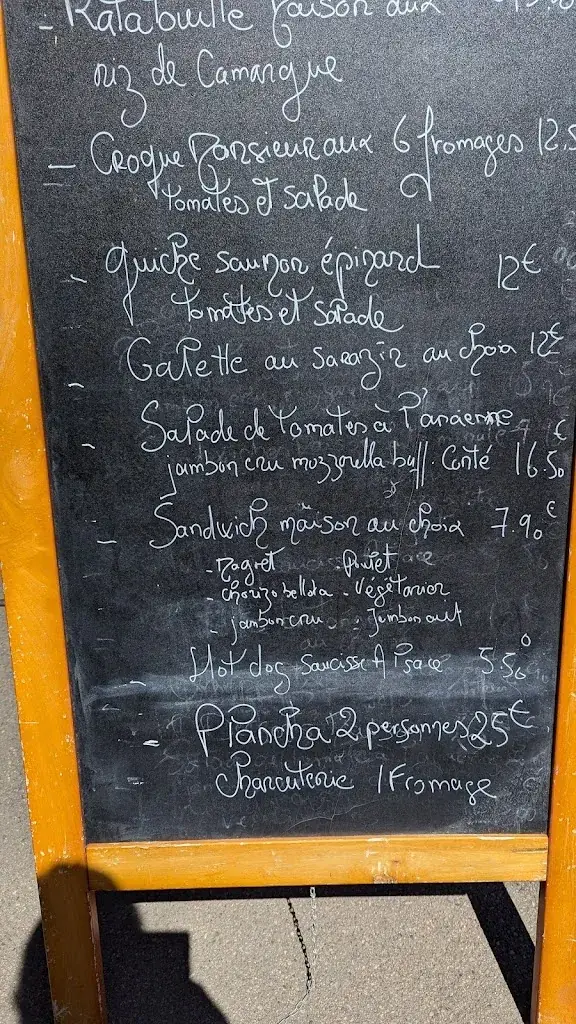 - Ratatouille maison aux
riz de Camargue
- Croque Monsieur aux 6 fromages 12.5
tomates et salade
- quiche saumon épinard 12€
tomates et salade
- Galette au sarazin au choix 12€
- Salade de tomates à l'ancienne €
jambon cru mozzorella buff. Comté 16.50
- Sandwich maison au choix 7.90€
- Magret - Poulet
- chorizo bellota - Végétarien
- jambon cru - Jambon cuit
- Hot dog saucisse Alsace 5.50
- Plancha 2 personnes 25€
charcuterie / Fromage